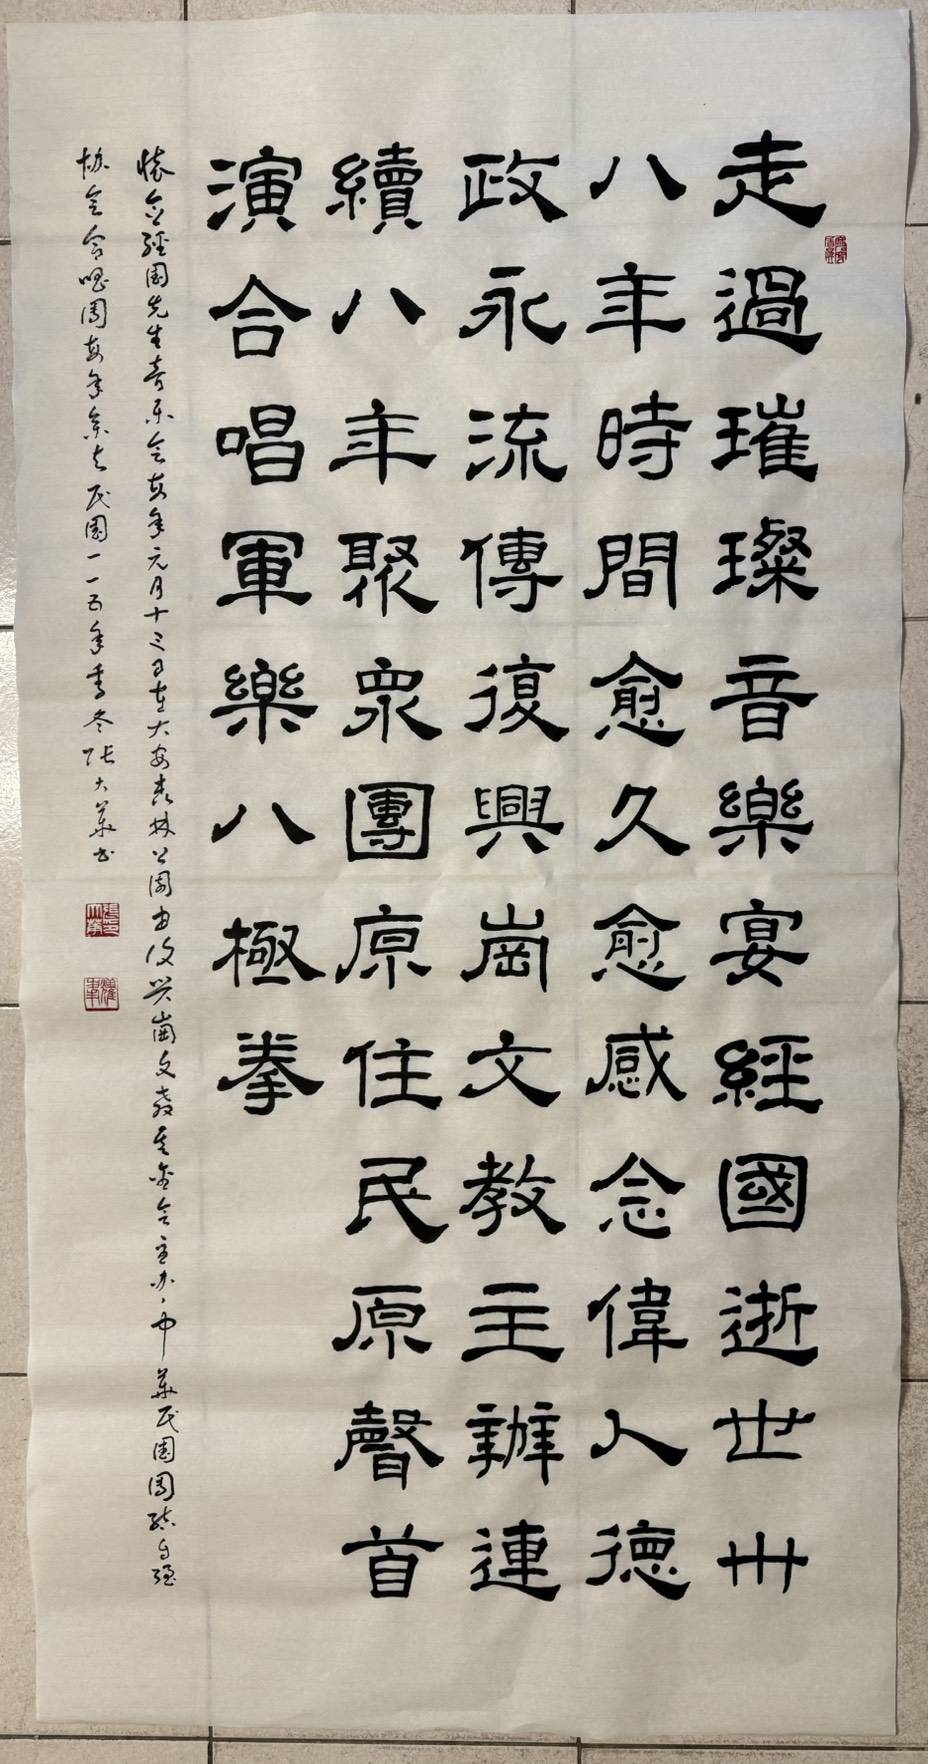 走過璀璨音樂宴經國逝世卅
八年時間愈久愈感念偉人德
政永流傳復興崗文教主辦連
續八年聚眾團原住民原聲首
演合唱軍樂八極拳
懷念經國先生音乐会每年元月十三日在大安森林公園由復兴崗文教基金会主办，中華民國團結自強
協会合唱團每年参与民國一一五年季冬張大華书